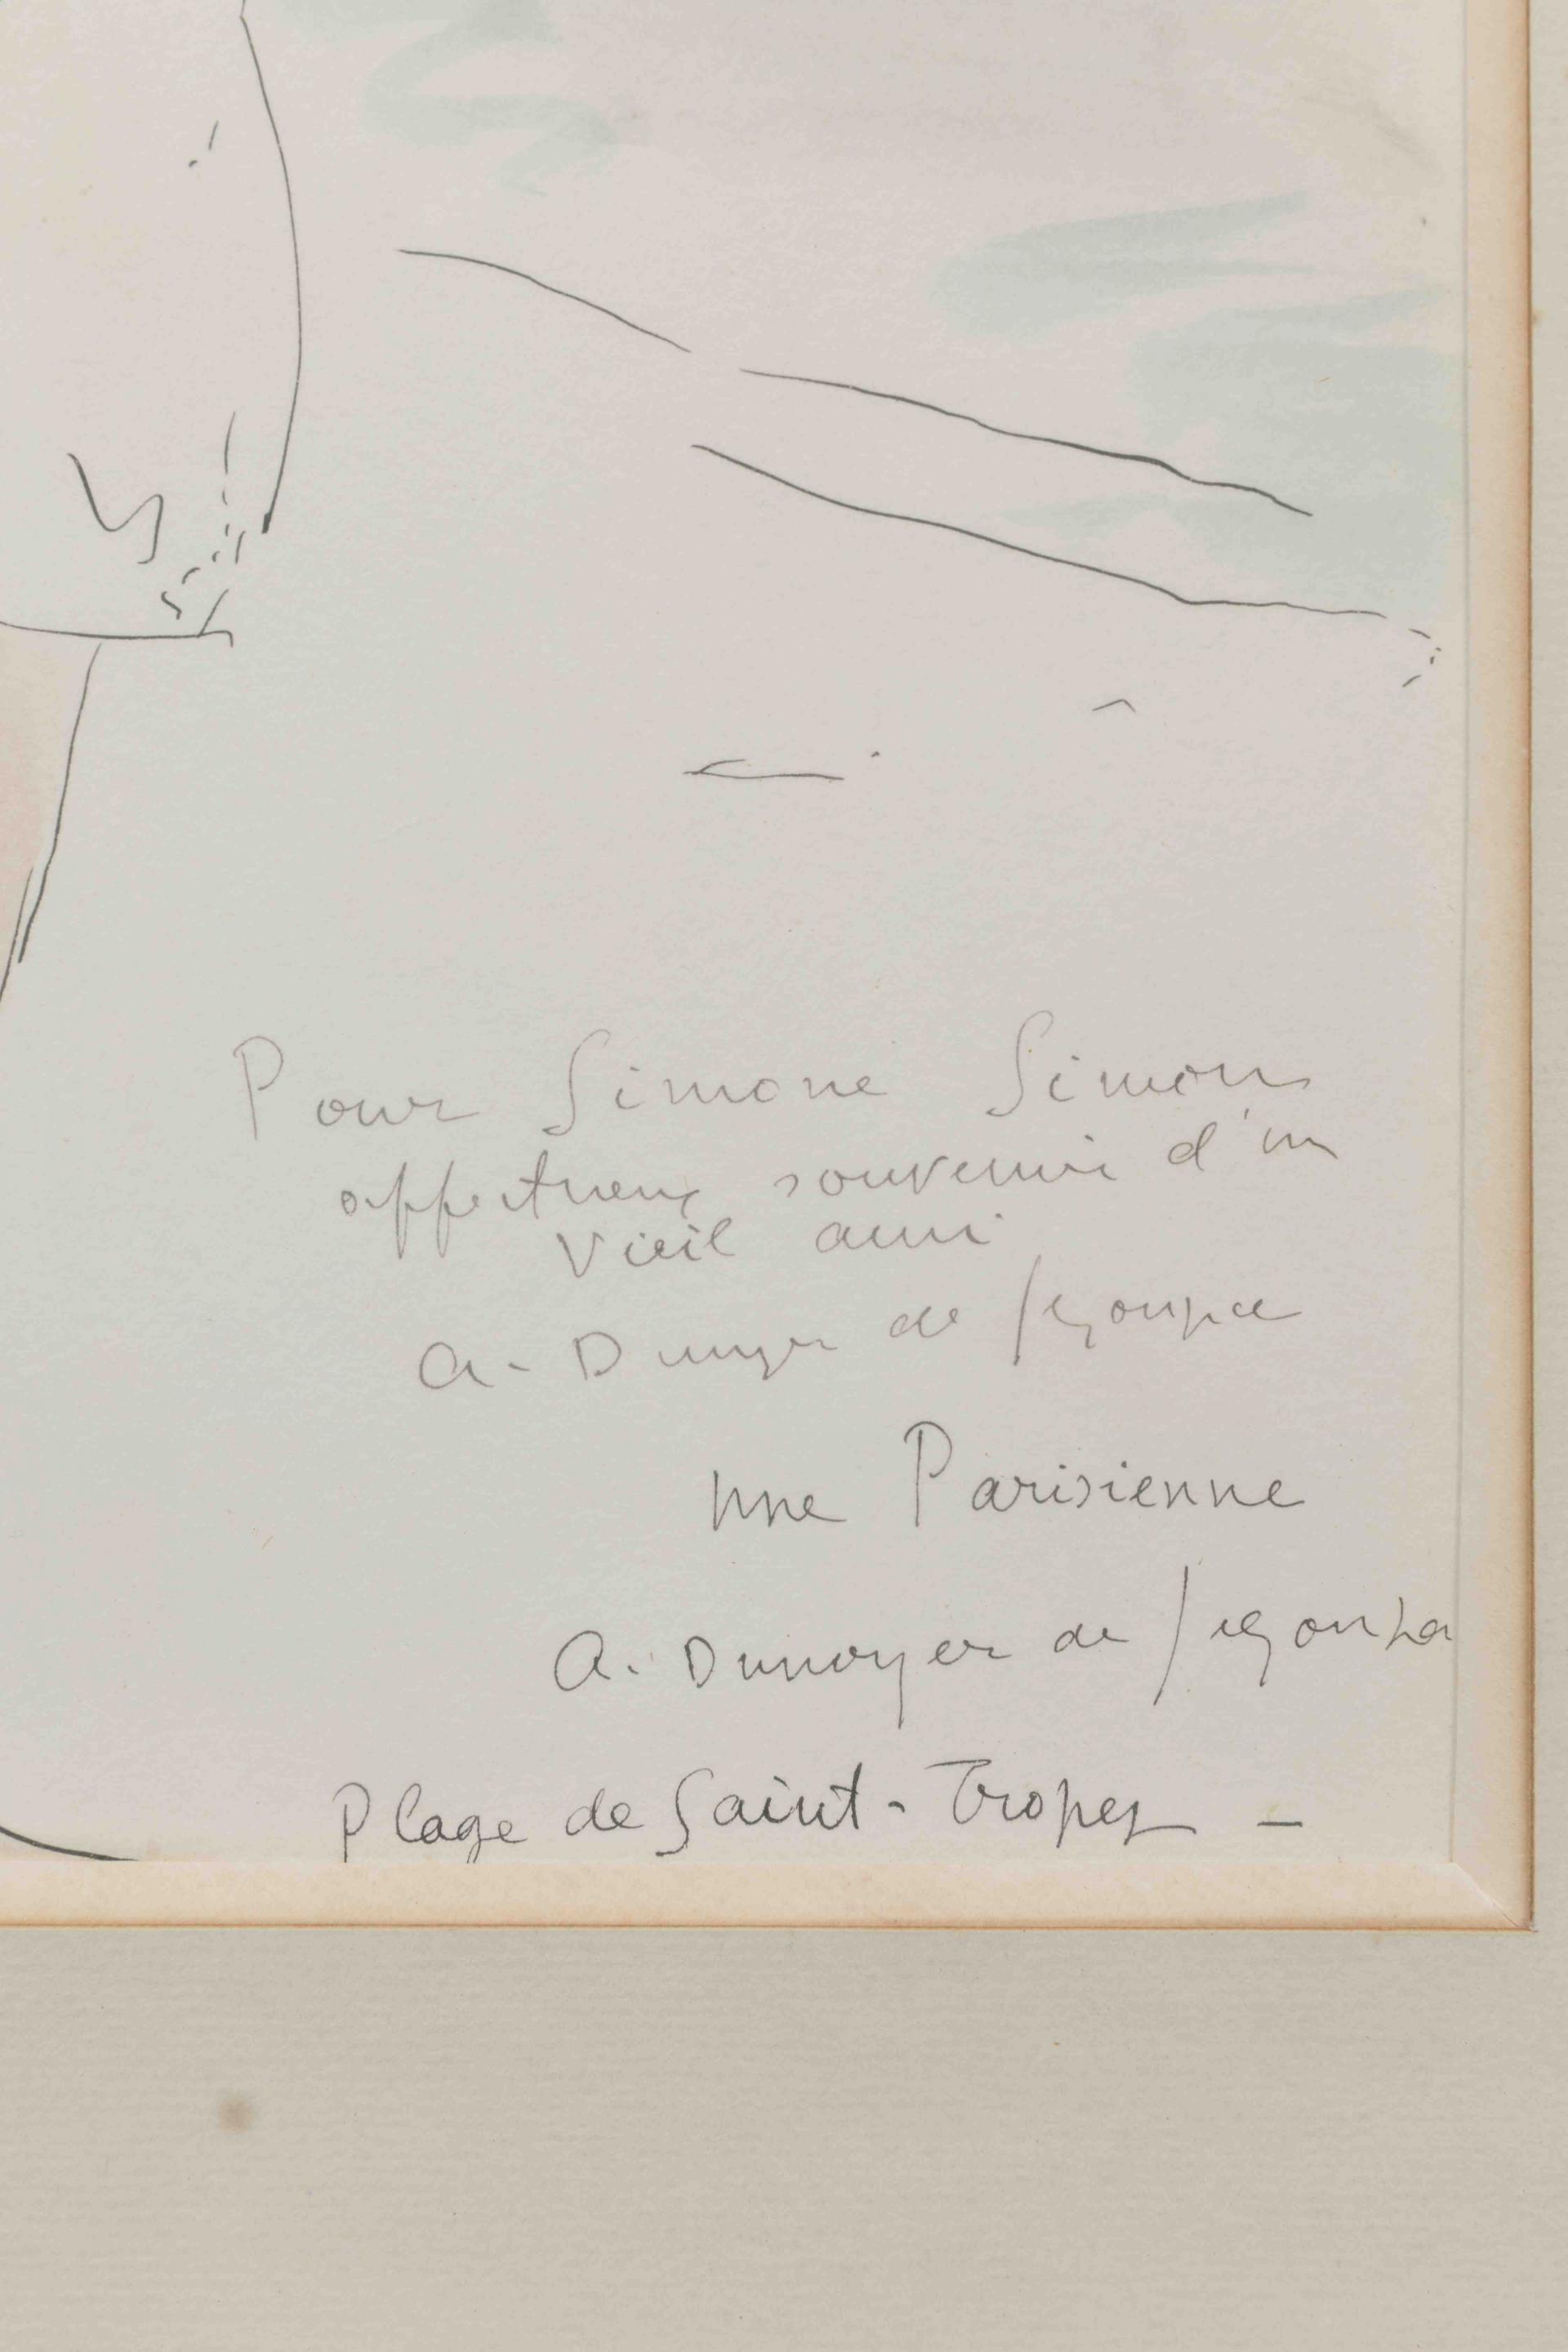 Pour Simone Simon
affectueux souvenir d'un
vieil ami
A. Dunoyer de Segonzac
Une Parisienne
A. Dunoyer de Segonza
Plage de Saint-Tropez -